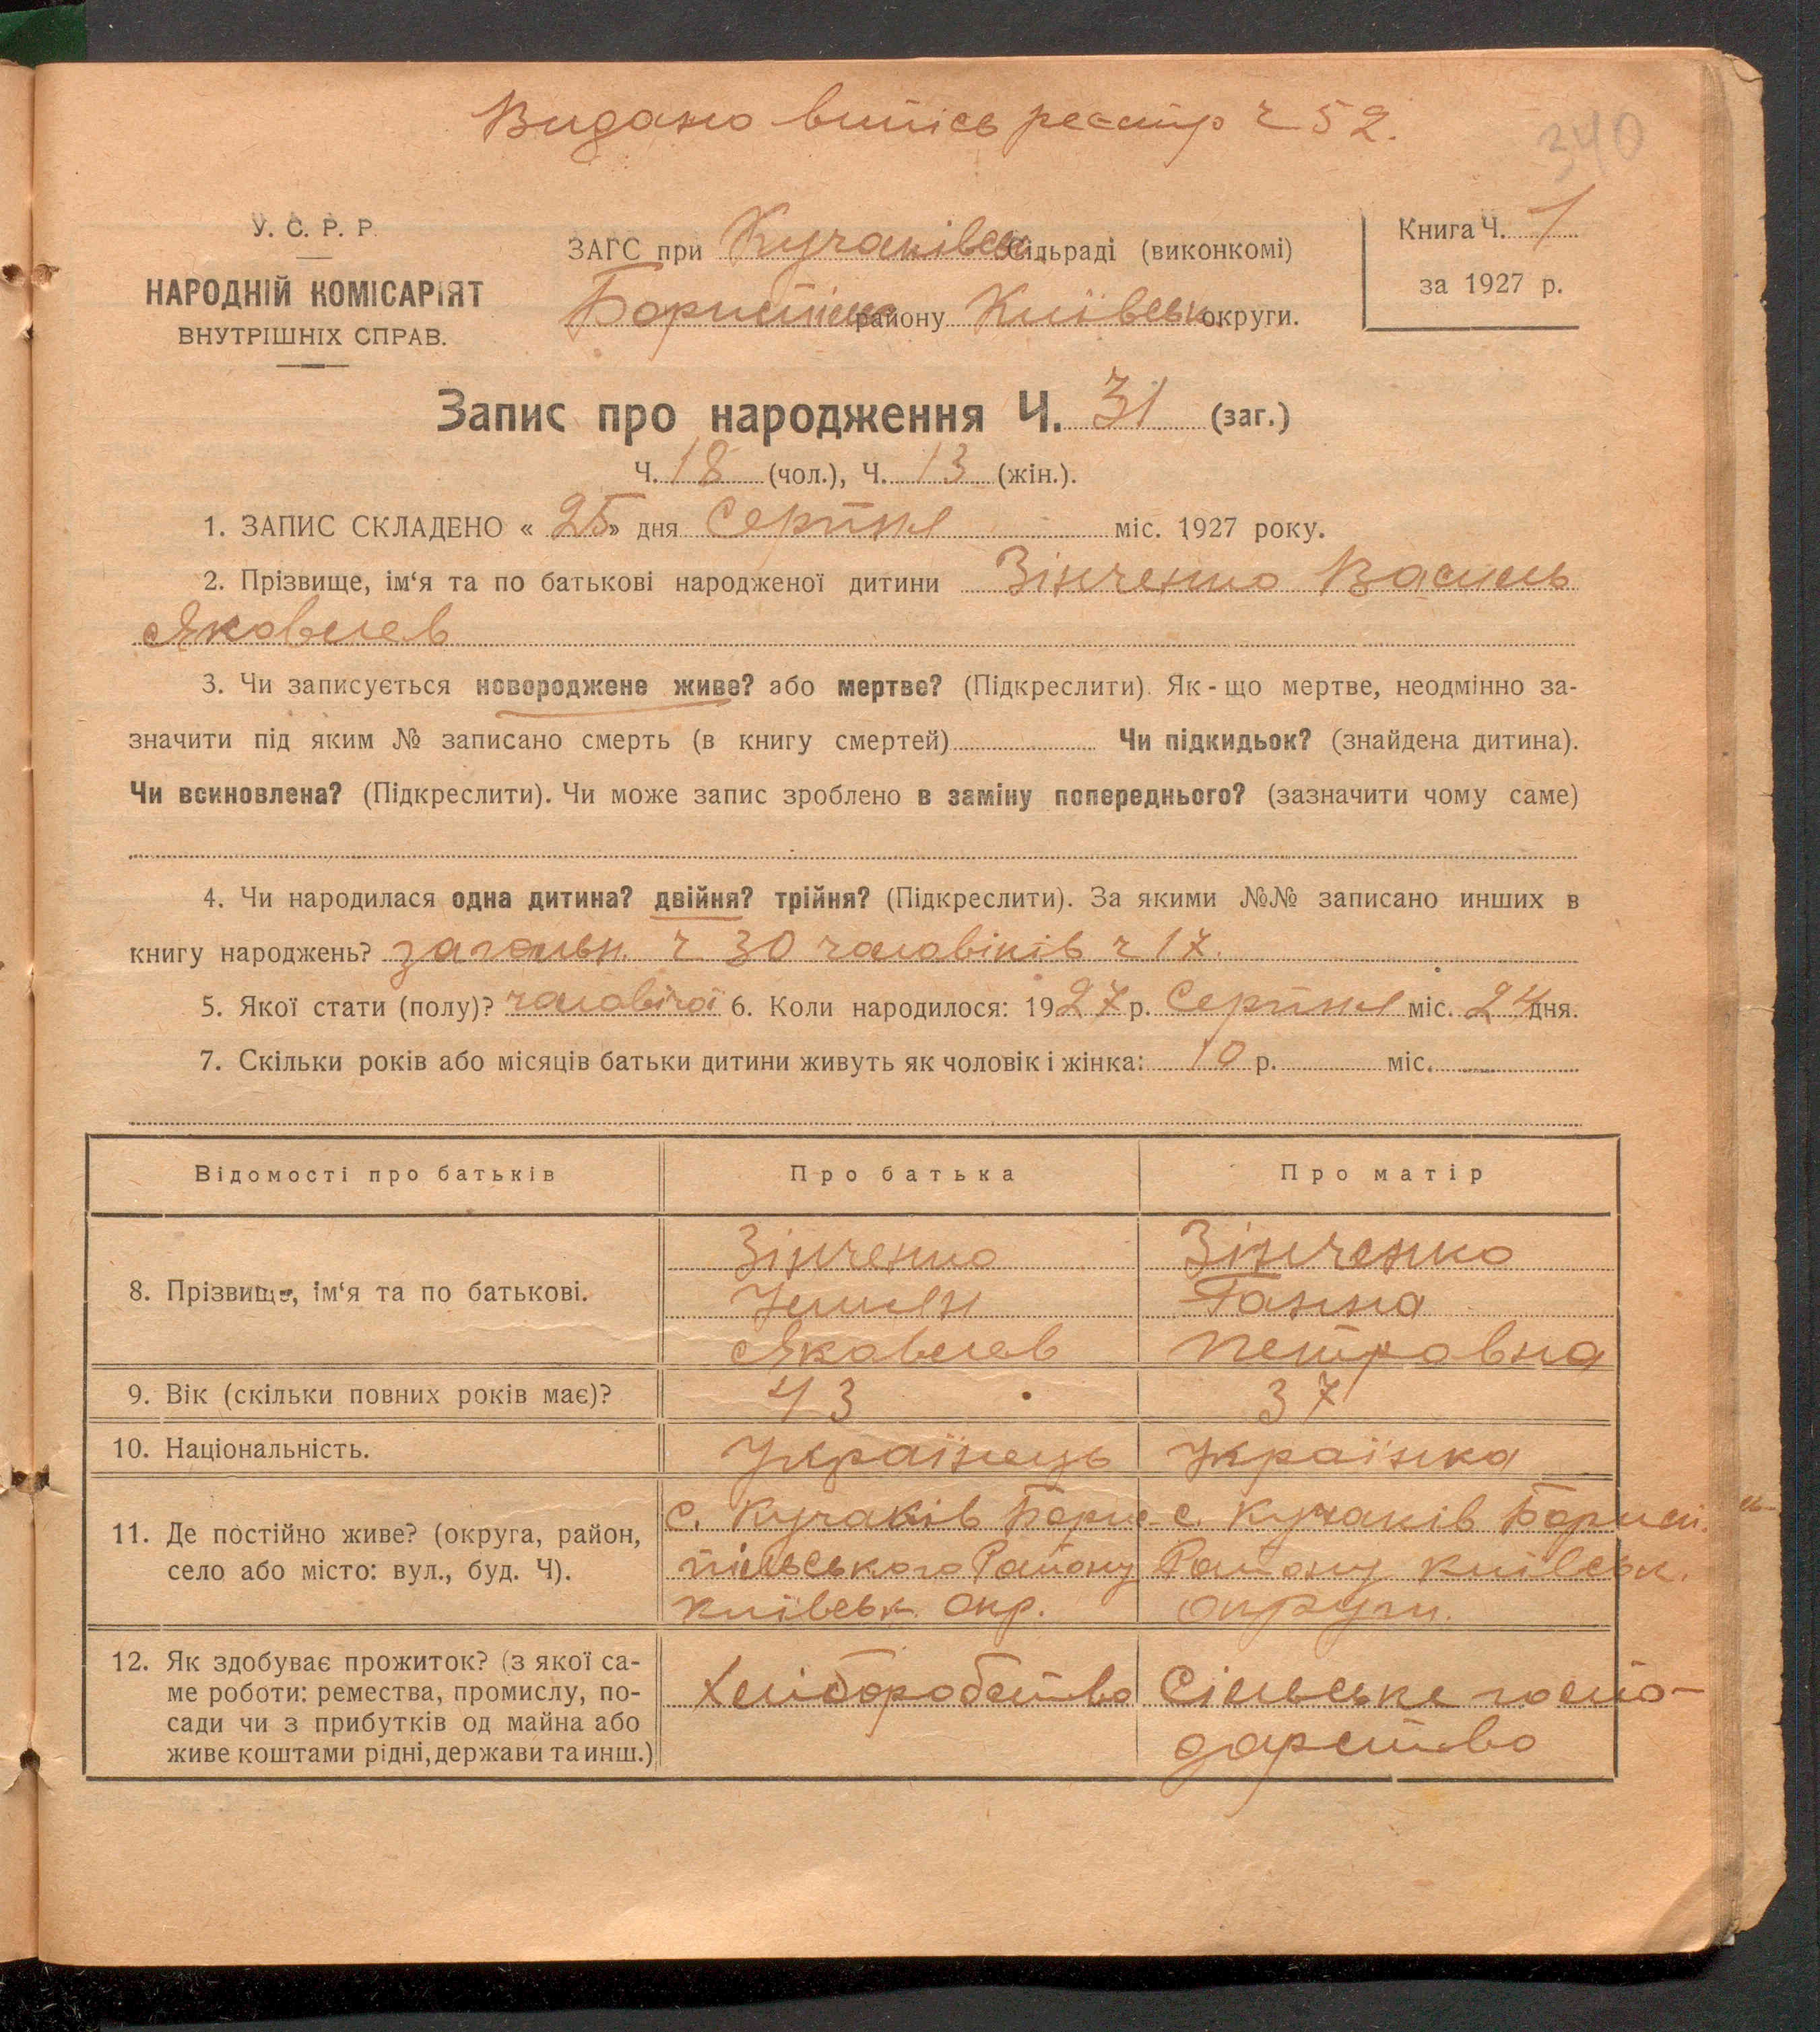 Видано випись реєстр ч 52.
340
У. С. Р. Р.
НАРОДНІЙ КОМІСАРІЯТ
ВНУТРІШНІХ СПРАВ.
ЗАГС при Кучаківськ. Сільраді (виконкомі)
Бориспільс району Київськ. округи.
Книга Ч. 1
за 1927 р.
Запис про народження Ч. 31 (заг.)
Ч. 18 (чол.), Ч. 13 (жін.).
1. ЗАПИС СКЛАДЕНО « 25 » дня Серпня міс. 1927 року.
2. Прізвище, ім‘я та по батькові народженої дитини Зінченко Василь
Яковлев
3. Чи записується новороджене живе? або мертве? (Підкреслити). Як - що мертве, неодмінно за-
значити під яким № записано смерть (в книгу смертей) Чи підкидьок? (знайдена дитина).
Чи всиновлена? (Підкреслити). Чи може запис зроблено в заміну попереднього? (зазначити чому саме)
4. Чи народилася одна дитина? двійня? трійня? (Підкреслити). За якими №№ записано инших в
книгу народжень? загальн. ч 30 чаловіків ч 17.
5. Якої стати (полу)? чаловічої 6. Коли народилося: 1927 р. Серпня міс. 24 дня.
7. Скільки років або місяців батьки дитини живуть як чоловік і жінка: 10 р. міс.
Відомості про батьків Про батька Про матір
8. Прізвище, ім‘я та по батькові.
Зінченко
Яковлев
Зінченко
Ганна
Петровна
9. Вік (скільки повних років має)? 43 37
10. Національність. Українець Українка
11. Де постійно живе? (округа, район,
село або місто: вул., буд. Ч).
с. Кучаків Борис
пільського Району
Київськ. Окр.
с. Кучаків Борисп.
Району Київськ.
Округи.
12. Як здобуває прожиток? (з якої са-
ме роботи: ремества, промислу, по-
сади чи з прибутків од майна або
живе коштами рідні, держави та инш.)
Хліборобство
Сільське госпо-
дарство